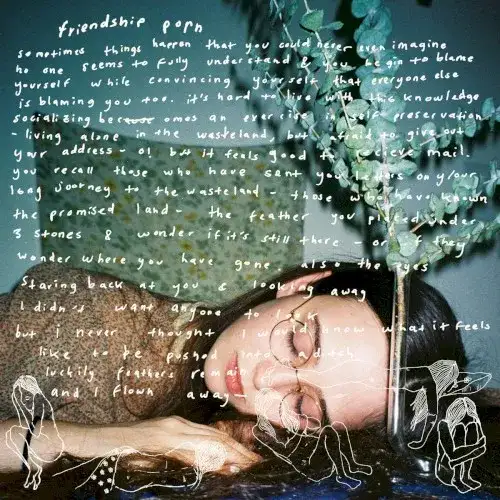 friendship porn
sometimes things happen that you could never even imagine
no one seems to fully understand & you begin to blame
yourself while convincing yourself that everyone else
is blaming you too. it's hard to live with this knowledge
socializing becomes an exercise in self preservation
- living alone in the wasteland, but afraid to give out
your address - o! but it feels good to receive mail.
you recall those who have sent you letters on your
long journey to the wasteland - those who have known
the promised land - the feather you placed under
3 stones & wonder if it's still there - or if they
wonder where you have gone. also the eyes
staring back at you & looking away
I didn't want anyone to look
but I never thought I would know what it feels
like to be pushed into a ditch
luckily feathers remain
and I flown away -